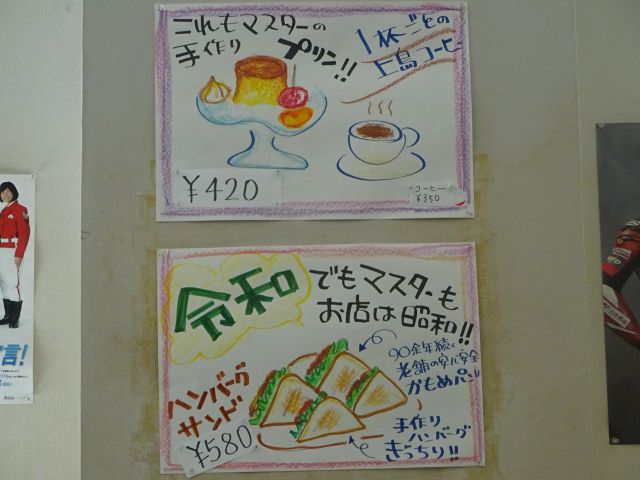 これもマスターの
手作り プリン!!
1杯ごとの
上島コーヒー
¥420
コーヒー
¥350
令和でもマスターも
お店は昭和!!
90余年続く
老舗の安心安全
かもめパン
ハンバーグ
サンド
¥580
手作り
ハンバーグ
ぎっちり!!
言!